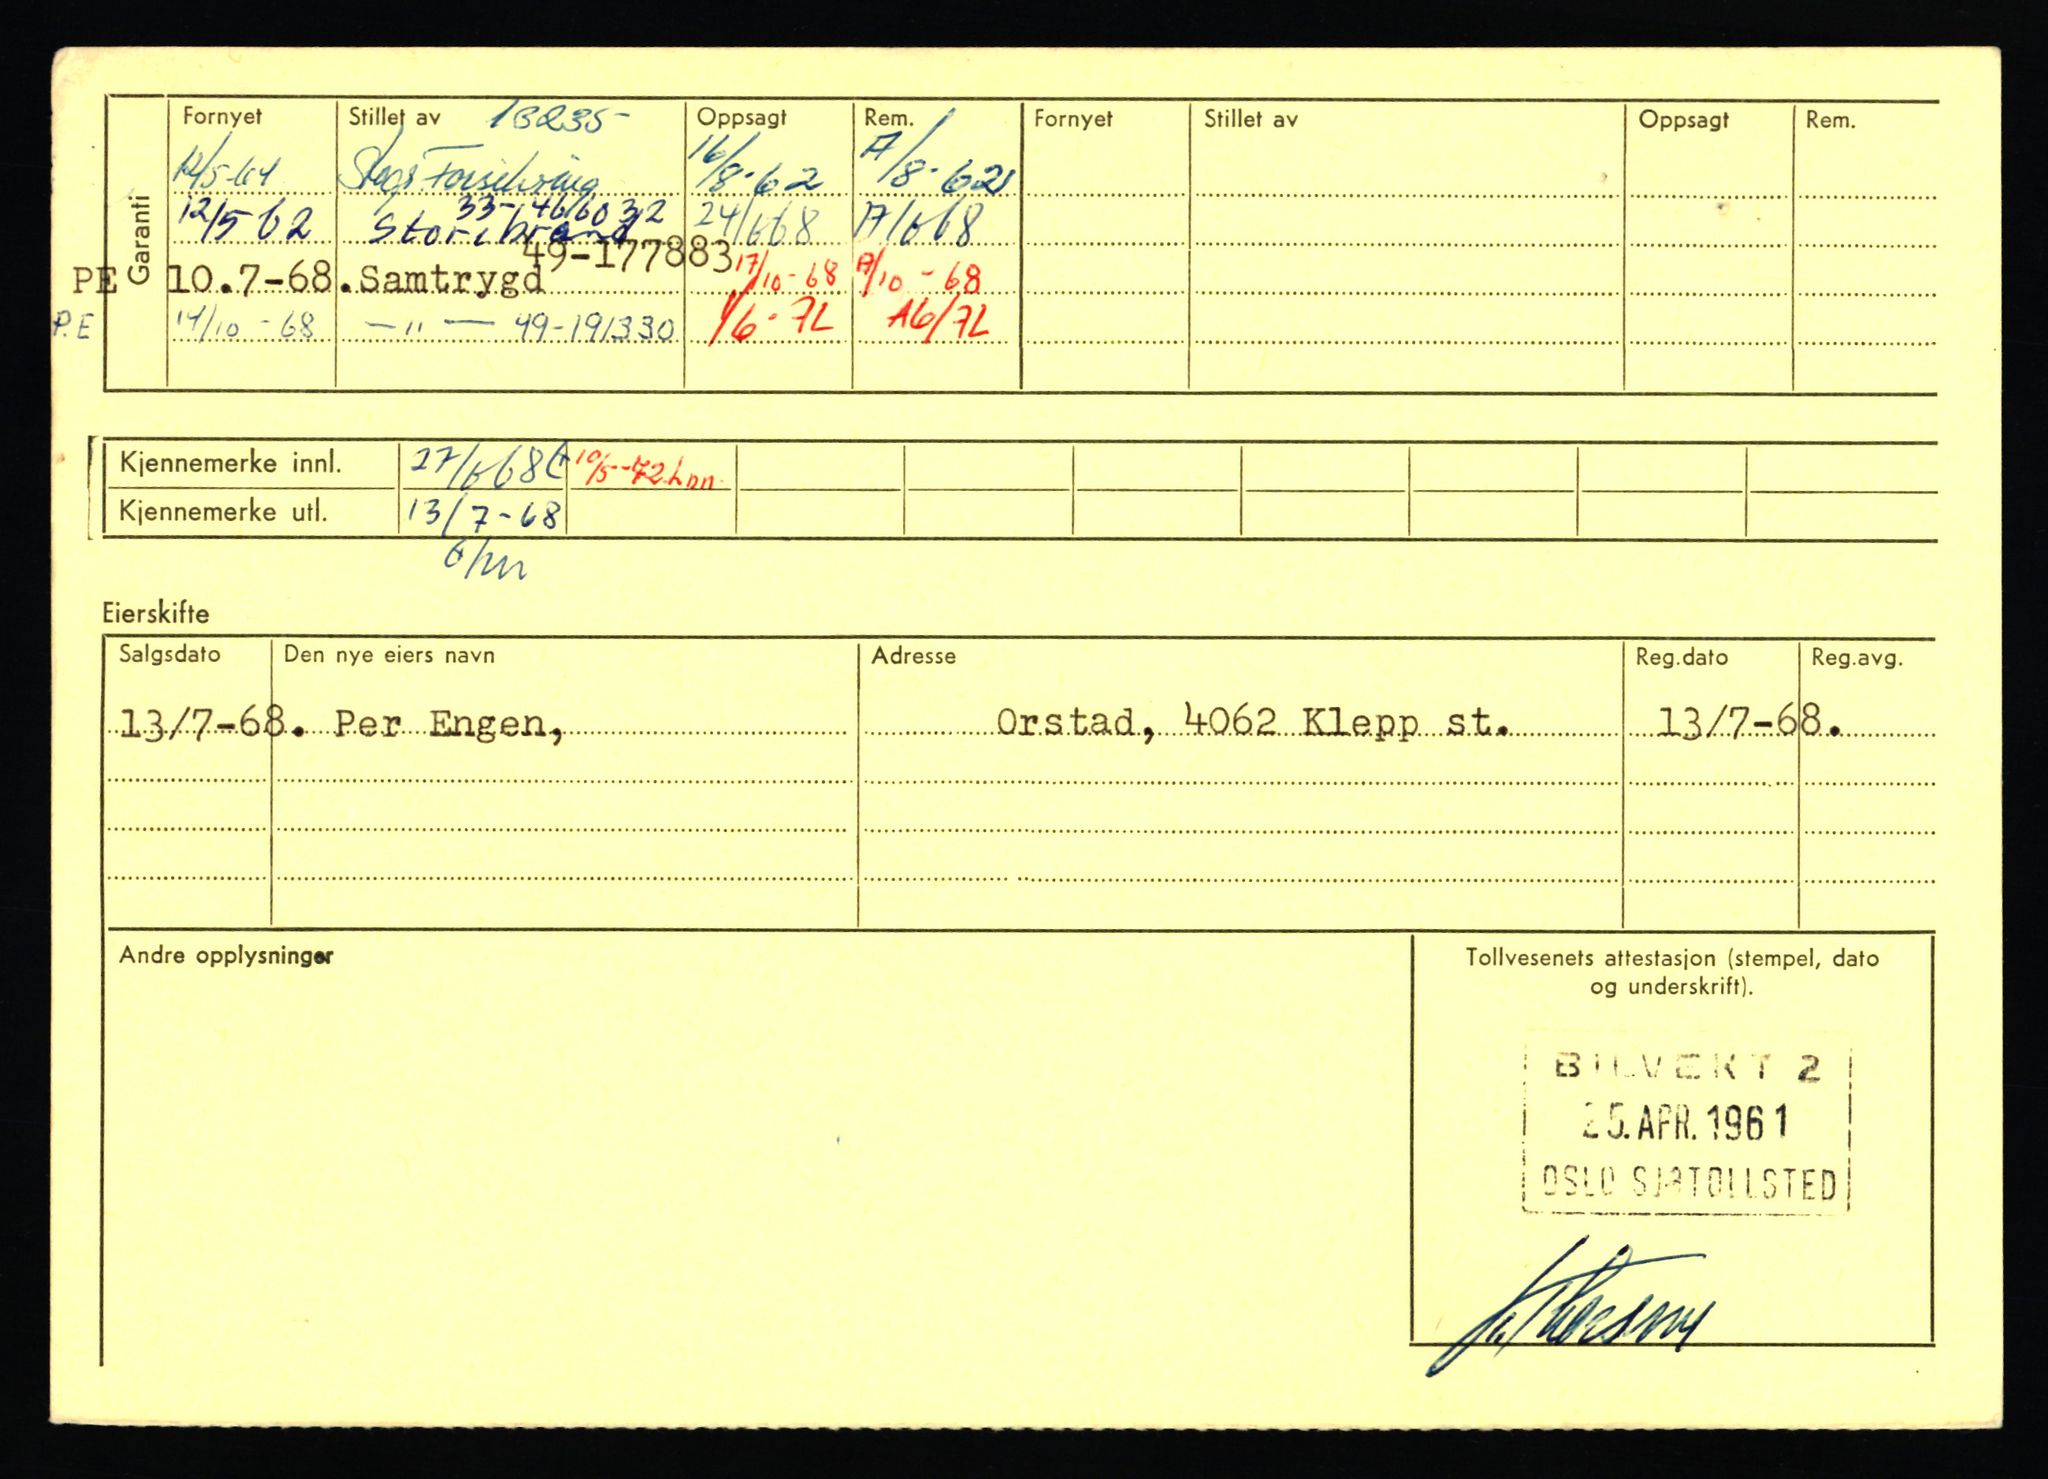 Garanti
Fornyet Stillet av 13235- Oppsagt Rem. Fornyet Stillet av Oppsagt Rem.
16/8-62 A/8-62
12/5 62 Storebrand 33-1466032 24/668 A/668
PE 10.7-68. Samtrygd 49-177883 17/10-68 A/10-68
P.E 14/10-68 —"— 49-191330 1/6-72 A6/72
Kjennemerke innl. 27/668 10/5-72
Kjennemerke utl. 13/7-68
Eierskifte
Salgsdato Den nye eiers navn Adresse Reg.dato Reg.avg.
13/7-68. Per Engen, Orstad, 4062 Klepp st. 13/7-68.
Andre opplysninger
Tollvesenets attestasjon (stempel, dato
og underskrift).
BILVEKT 2
25. APR. 1961
OSLO SJØTOLLSTED